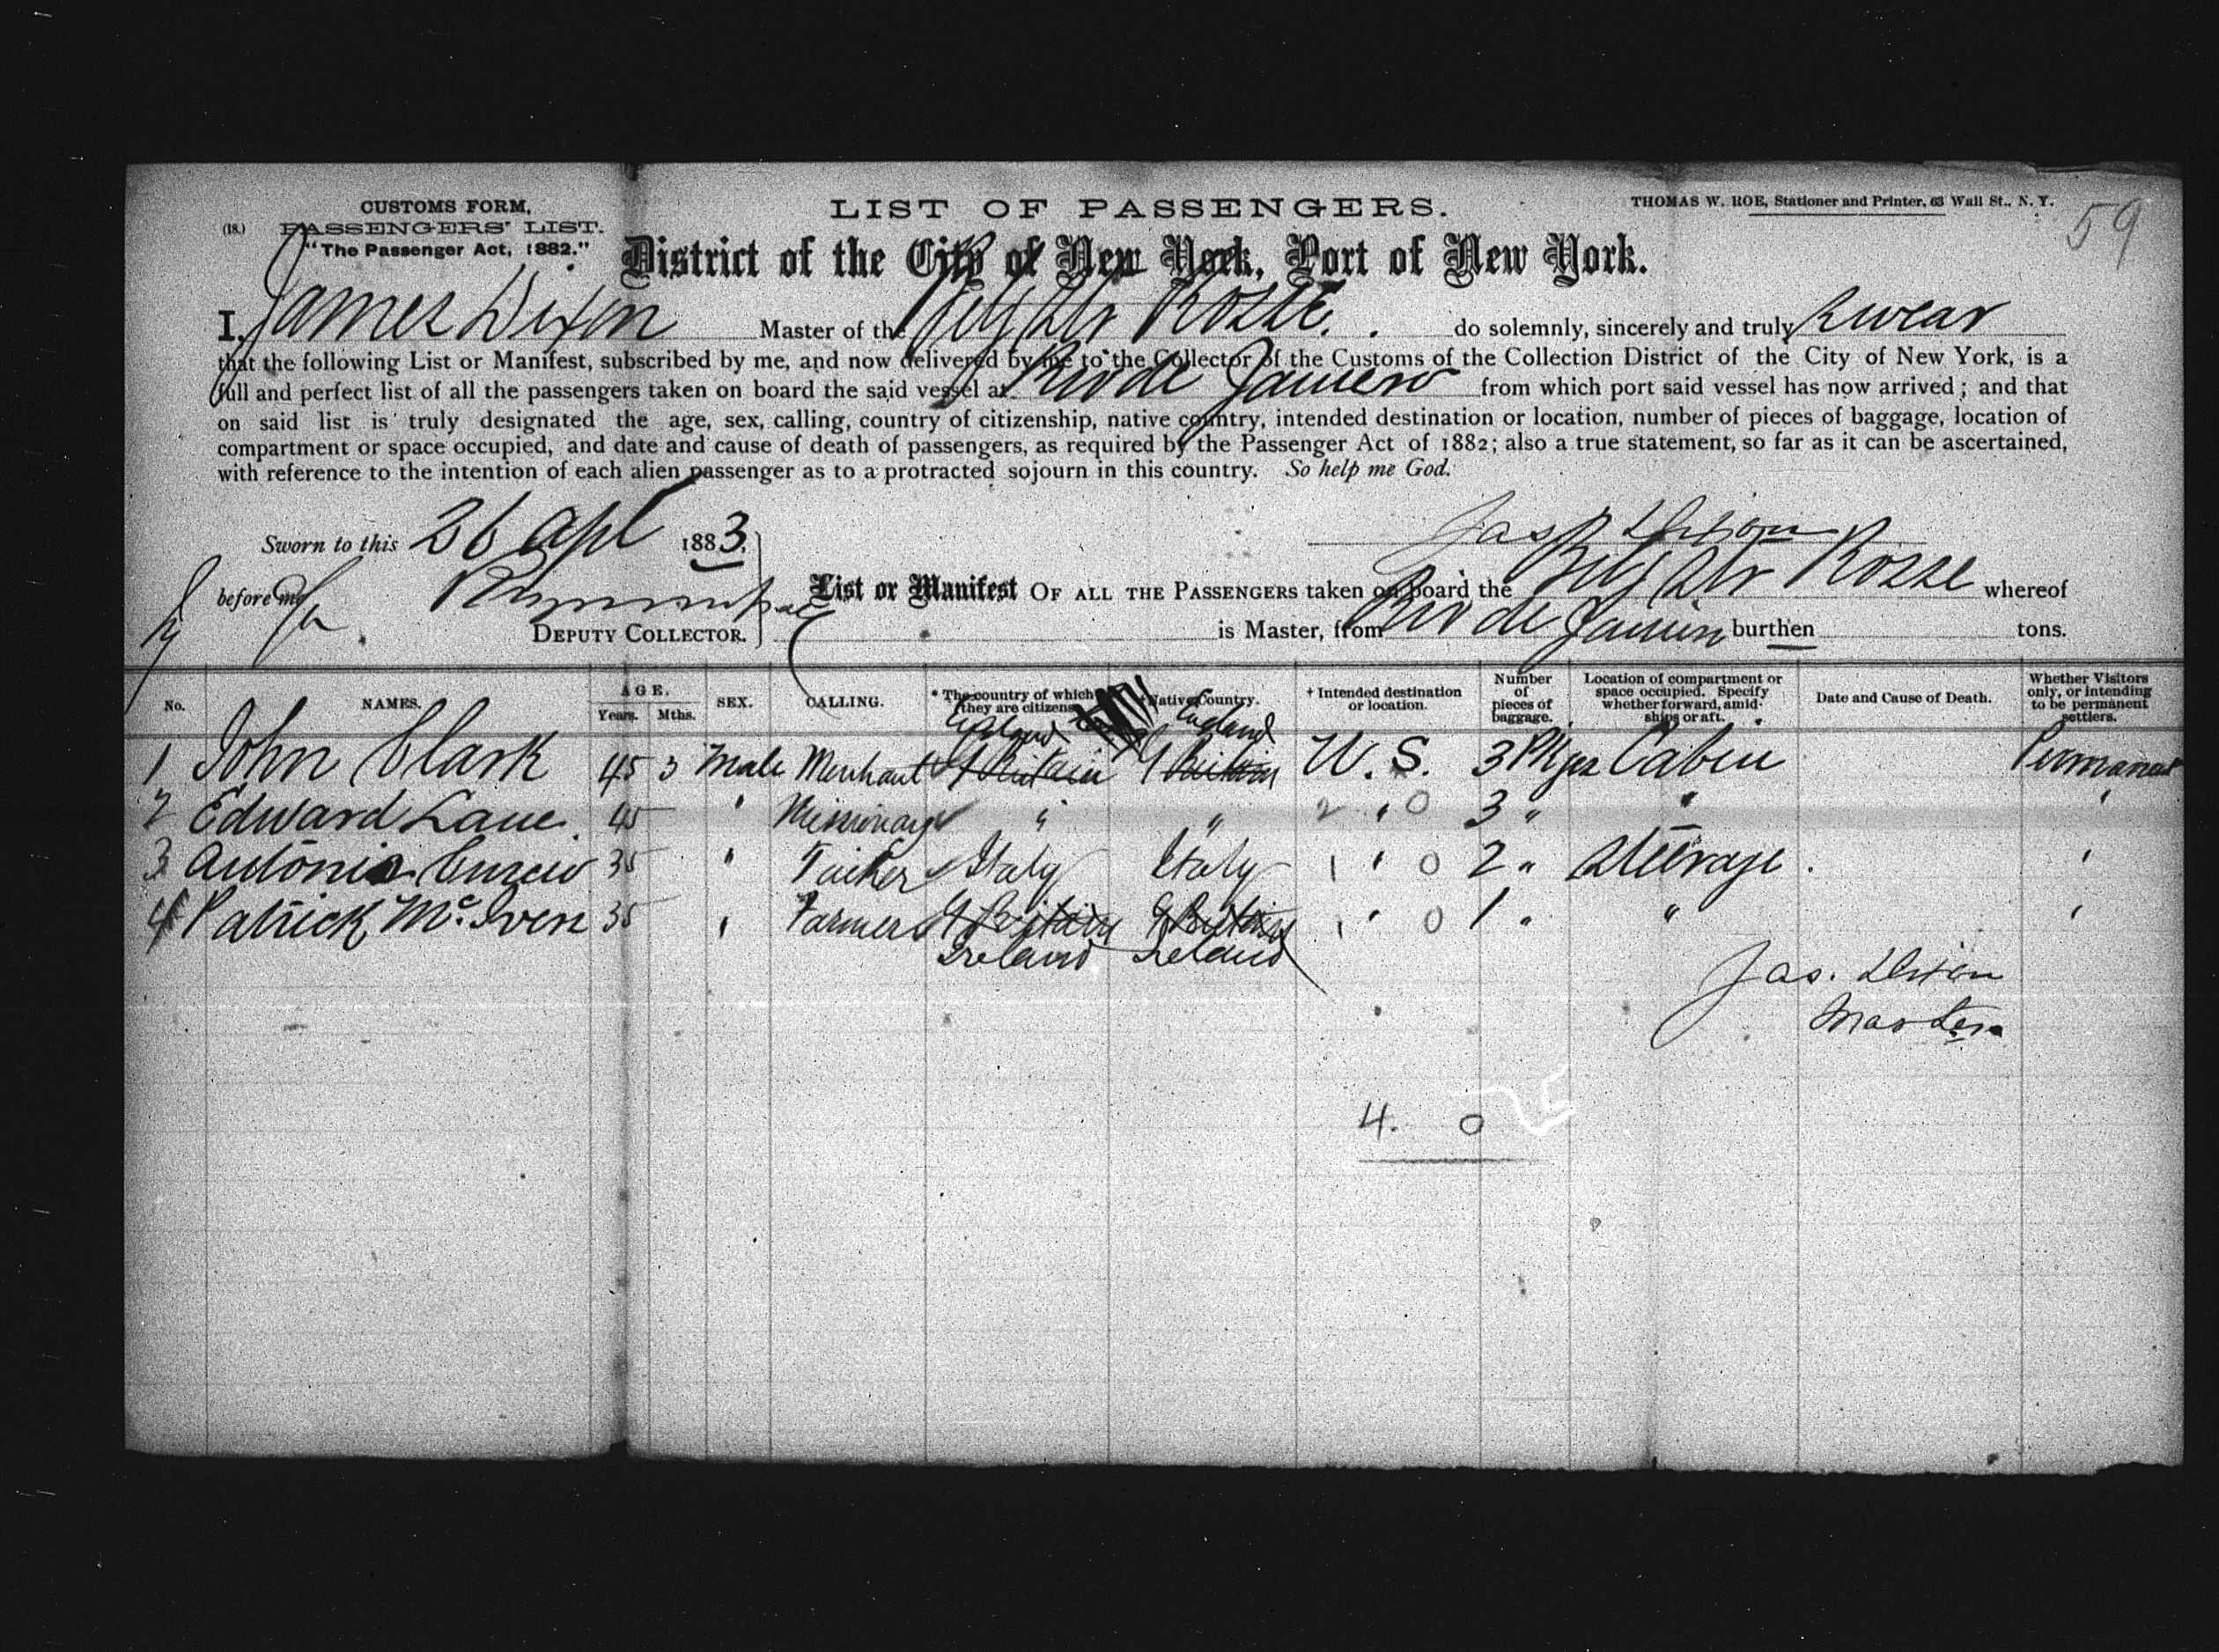 CUSTOMS FORM,
(18.) PASSENGERS' LIST.
"The Passenger Act, 1882."
LIST OF PASSENGERS.
THOMAS W. ROE, Stationer and Printer, 63 Wall St., N. Y.
59
District of the City of New York, Port of New York.
I, James Dixon Master of the Str Rosse. do solemnly, sincerely and truly swear
that the following List or Manifest, subscribed by me, and now delivered by me to the Collector of the Customs of the Collection District of the City of New York, is a
full and perfect list of all the passengers taken on board the said vessel at Rio de Janeiro from which port said vessel has now arrived; and that
on said list is truly designated the age, sex, calling, country of citizenship, native country, intended destination or location, number of pieces of baggage, location of
compartment or space occupied, and date and cause of death of passengers, as required by the Passenger Act of 1882; also a true statement, so far as it can be ascertained,
with reference to the intention of each alien passenger as to a protracted sojourn in this country. So help me God.
Sworn to this 26 Apl 1883.
Jas Dixon
before me
DEPUTY COLLECTOR.
List or Manifest OF ALL THE PASSENGERS taken on board the Str Rosse whereof
is Master, from Rio de Janeiro burthen tons.
No. NAMES. AGE. Years. Mths. SEX. CALLING. * The country of which they are citizens. Native Country. † Intended destination or location. Number of pieces of baggage. Location of compartment or space occupied. Specify whether forward, amidships or aft. Date and Cause of Death. Whether Visitors only, or intending to be permanent settlers.
England England
1 John Clark 45 3 Male Merchant G Britain G Britain U. S. 3 Pkges Cabin Permanent
2 Edward Lane. 45 " Missionary " " 2 " 0 3 " " "
3 Antonio 35 " Italy Italy 1 " 0 2 " Steerage. "
4 Patrick Mc.Iven 35 " Farmer G Britain G Britain 1 " 0 1 " " "
Ireland Ireland
Jas. Dixon
Master
4. 0